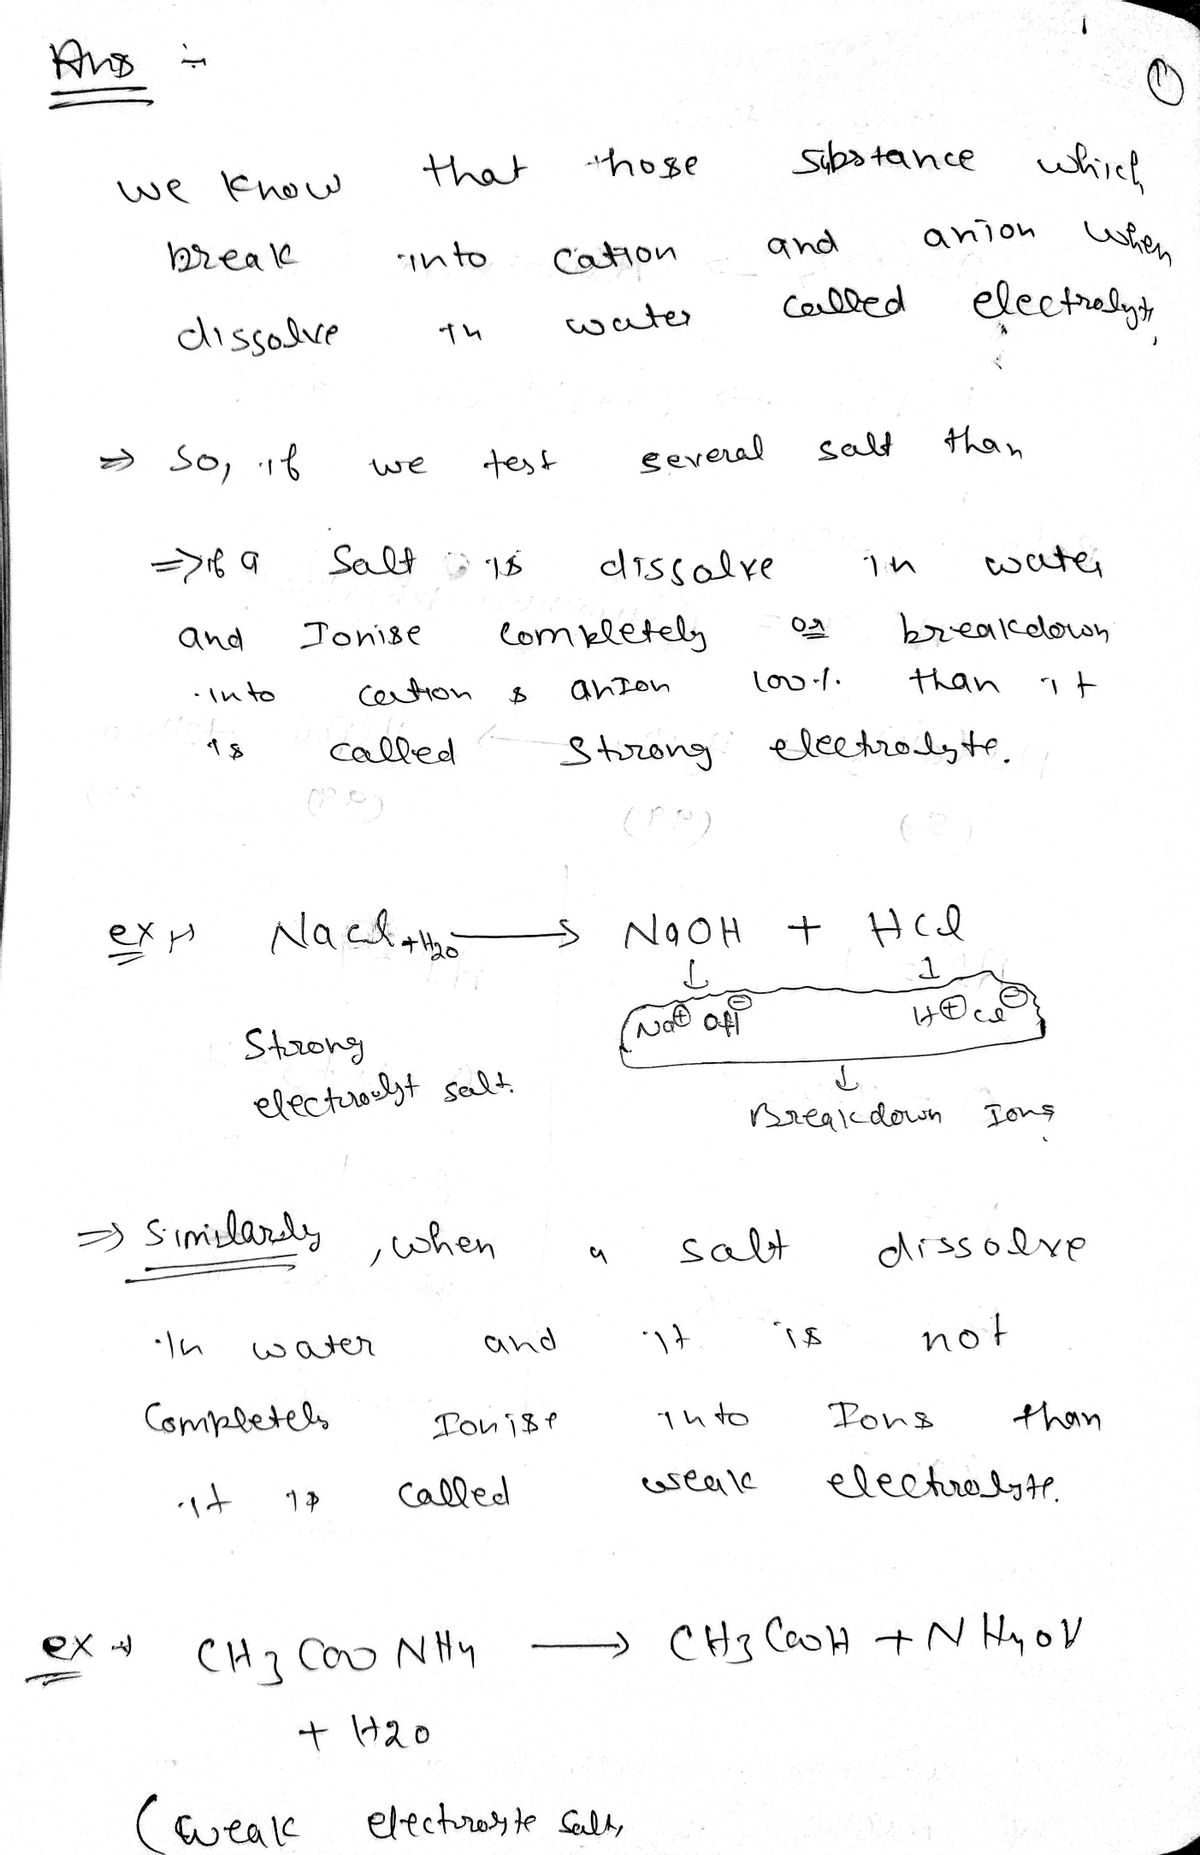 Ans :-
1
we know that those substance which
break into cation and anion when
dissolve in water called electrolyte,
=> So, if we test several salt than
=> if a Salt is dissolve in water
and Ionise completely or breakdown
into cation & anion 100% than it
is called Strong electrolyte.
ex → NaCl + H2O → NaOH + HCl
↓ ↓
Na⊕ OH⊖ H⊕ Cl⊖
Strong
electrolyt salt.
↓
Breakdown Ions
=> Similarly, when a salt dissolve
in water and it is not
Completely Ionise into Ions than
it is called weak electrolyte.
ex → CH3COONH4 → CH3COOH + NH4OH
+ H2O
(weak electrolyte salt,